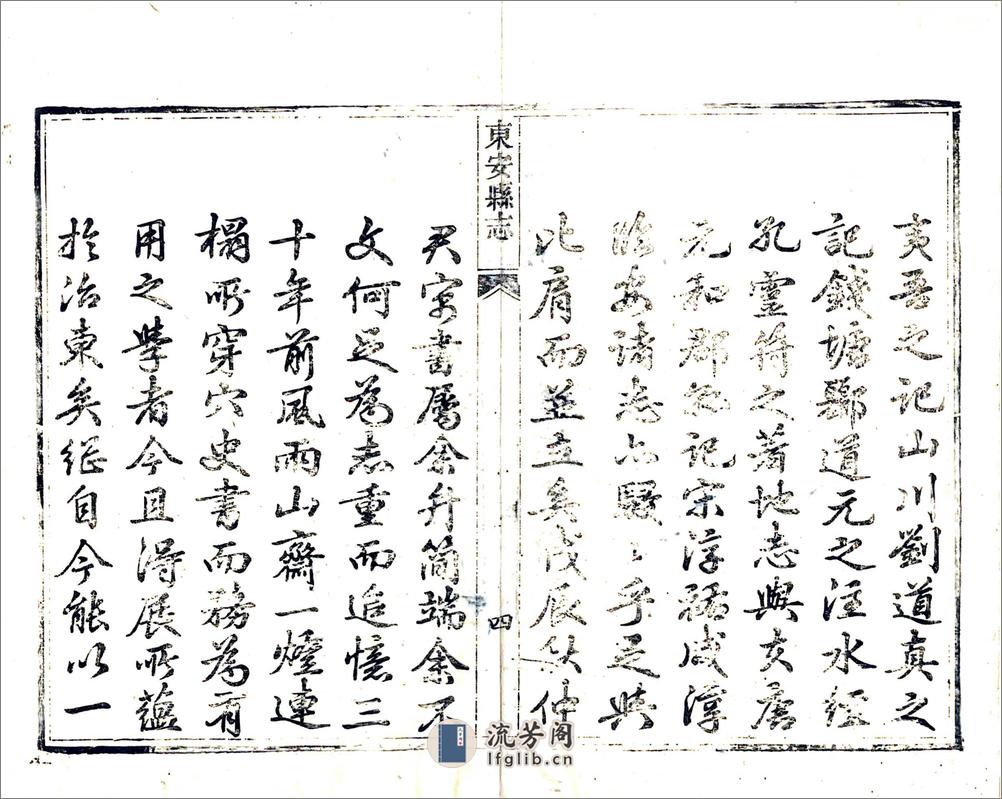 夷吾之記山川劉道真之
記錢塘酈道元之注水經
孔靈符之著地志與夫唐
元和郡縣記宋淳祐咸淳
臨安諸志亦駸〻乎足與
比肩而並立矣戊辰秋仲
東安縣志
四
君寄書屬余弁簡端余不
文何足為志重而追憶三
十年前風雨山齋一燈連
榻所穿穴史書而務為有
用之學者今且得展所蘊
於治東矣繼自今能以一
流芳阁
lfglib.cn